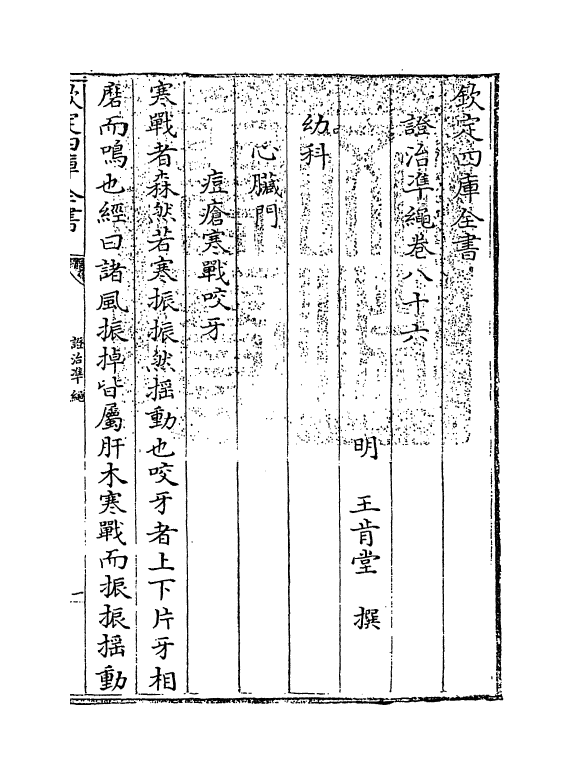 欽定四庫全書
證治準繩卷八十六
明　王肯堂　撰
幼科
心臟門
痘瘡寒戰咬牙
寒戰者森然若寒振振然揺動也咬牙者上下片牙相
磨而鳴也經曰諸風振掉皆屬肝木寒戰而振振揺動
欽定四庫全書
證治準繩
一